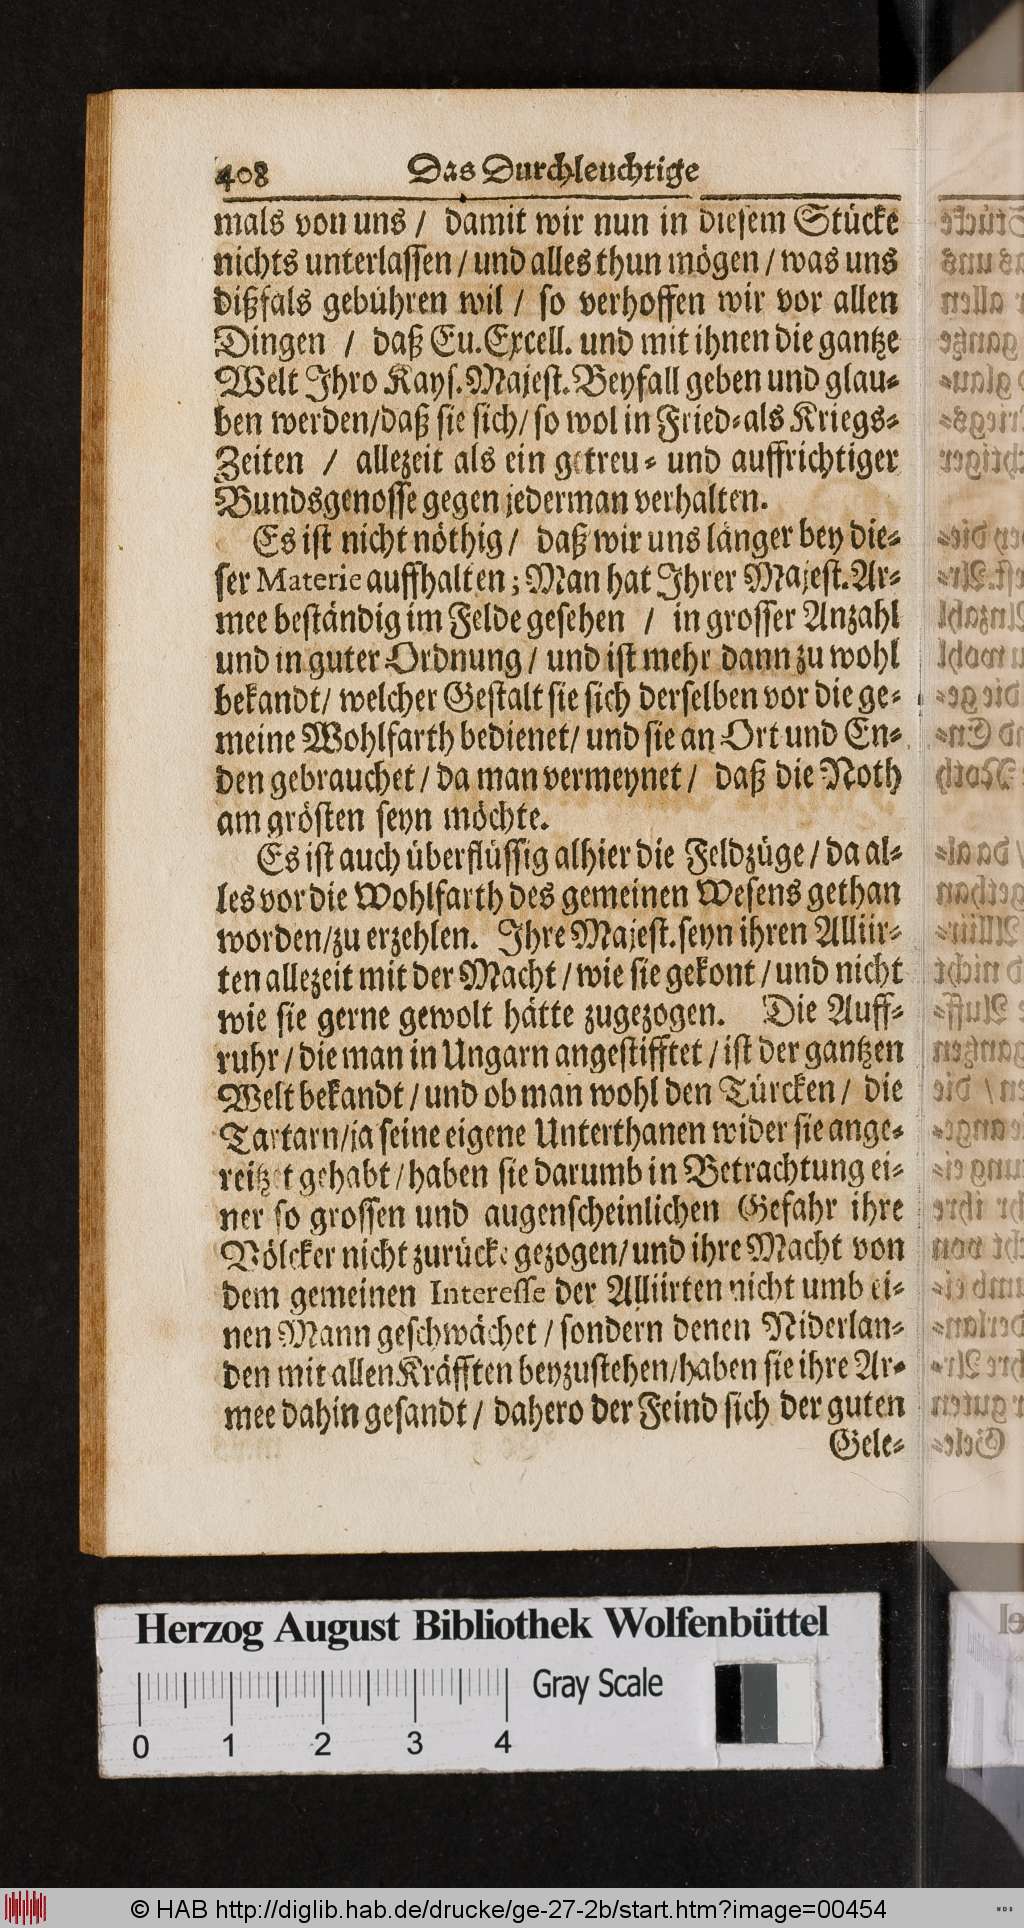 408 Das Durchleuchtige
mals von uns / damit wir nun in diesem Stücke
nichts unterlassen / und alles thun mögen / was uns
dißfals gebühren wil / so verhoffen wir vor allen
Dingen / daß Eu. Excell. und mit ihnen die gantze
Welt Ihro Kays. Majest. Beyfall geben und glau-
ben werden/daß sie sich/ so wol in Fried-als Kriegs-
Zeiten / allezeit als ein getreu- und auffrichtiger
Bundsgenosse gegen jederman verhalten.
Es ist nicht nöthig / daß wir uns länger bey die-
ser Materie auffhalten; Man hat Ihrer Majest. Ar-
mee beständig im Felde gesehen / in grosser Anzahl
und in guter Ordnung / und ist mehr dann zu wohl
bekandt/ welcher Gestalt sie sich derselben vor die ge-
meine Wohlfarth bedienet/ und sie an Ort und En-
den gebrauchet / da man vermeynet / daß die Noth
am grösten seyn möchte.
Es ist auch überflüssig alhier die Feldzüge / da al-
les vor die Wohlfarth des gemeinen Wesens gethan
worden/zu erzehlen. Ihre Majest. seyn ihren Alliir-
ten allezeit mit der Macht / wie sie gekont / und nicht
wie sie gerne gewolt hätte zugezogen. Die Auff-
ruhr / die man in Ungarn angestifftet / ist der gantzen
Welt bekandt / und ob man wohl den Türcken / die
Tartarn/ja seine eigene Unterthanen wider sie ange-
reitzet gehabt / haben sie darumb in Betrachtung ei-
ner so grossen und augenscheinlichen Gefahr ihre
Völcker nicht zurücke gezogen/ und ihre Macht von
dem gemeinen Interesse der Alliirten nicht umb ei-
nen Mann geschwächet / sondern denen Niderlan-
den mit allen Kräfften beyzustehen/haben sie ihre Ar-
mee dahin gesandt / dahero der Feind sich der guten
Gele-
Herzog August Bibliothek Wolfenbüttel
Gray Scale
0 1 2 3 4
© HAB http://diglib.hab.de/drucke/ge-27-2b/start.htm?image=00454